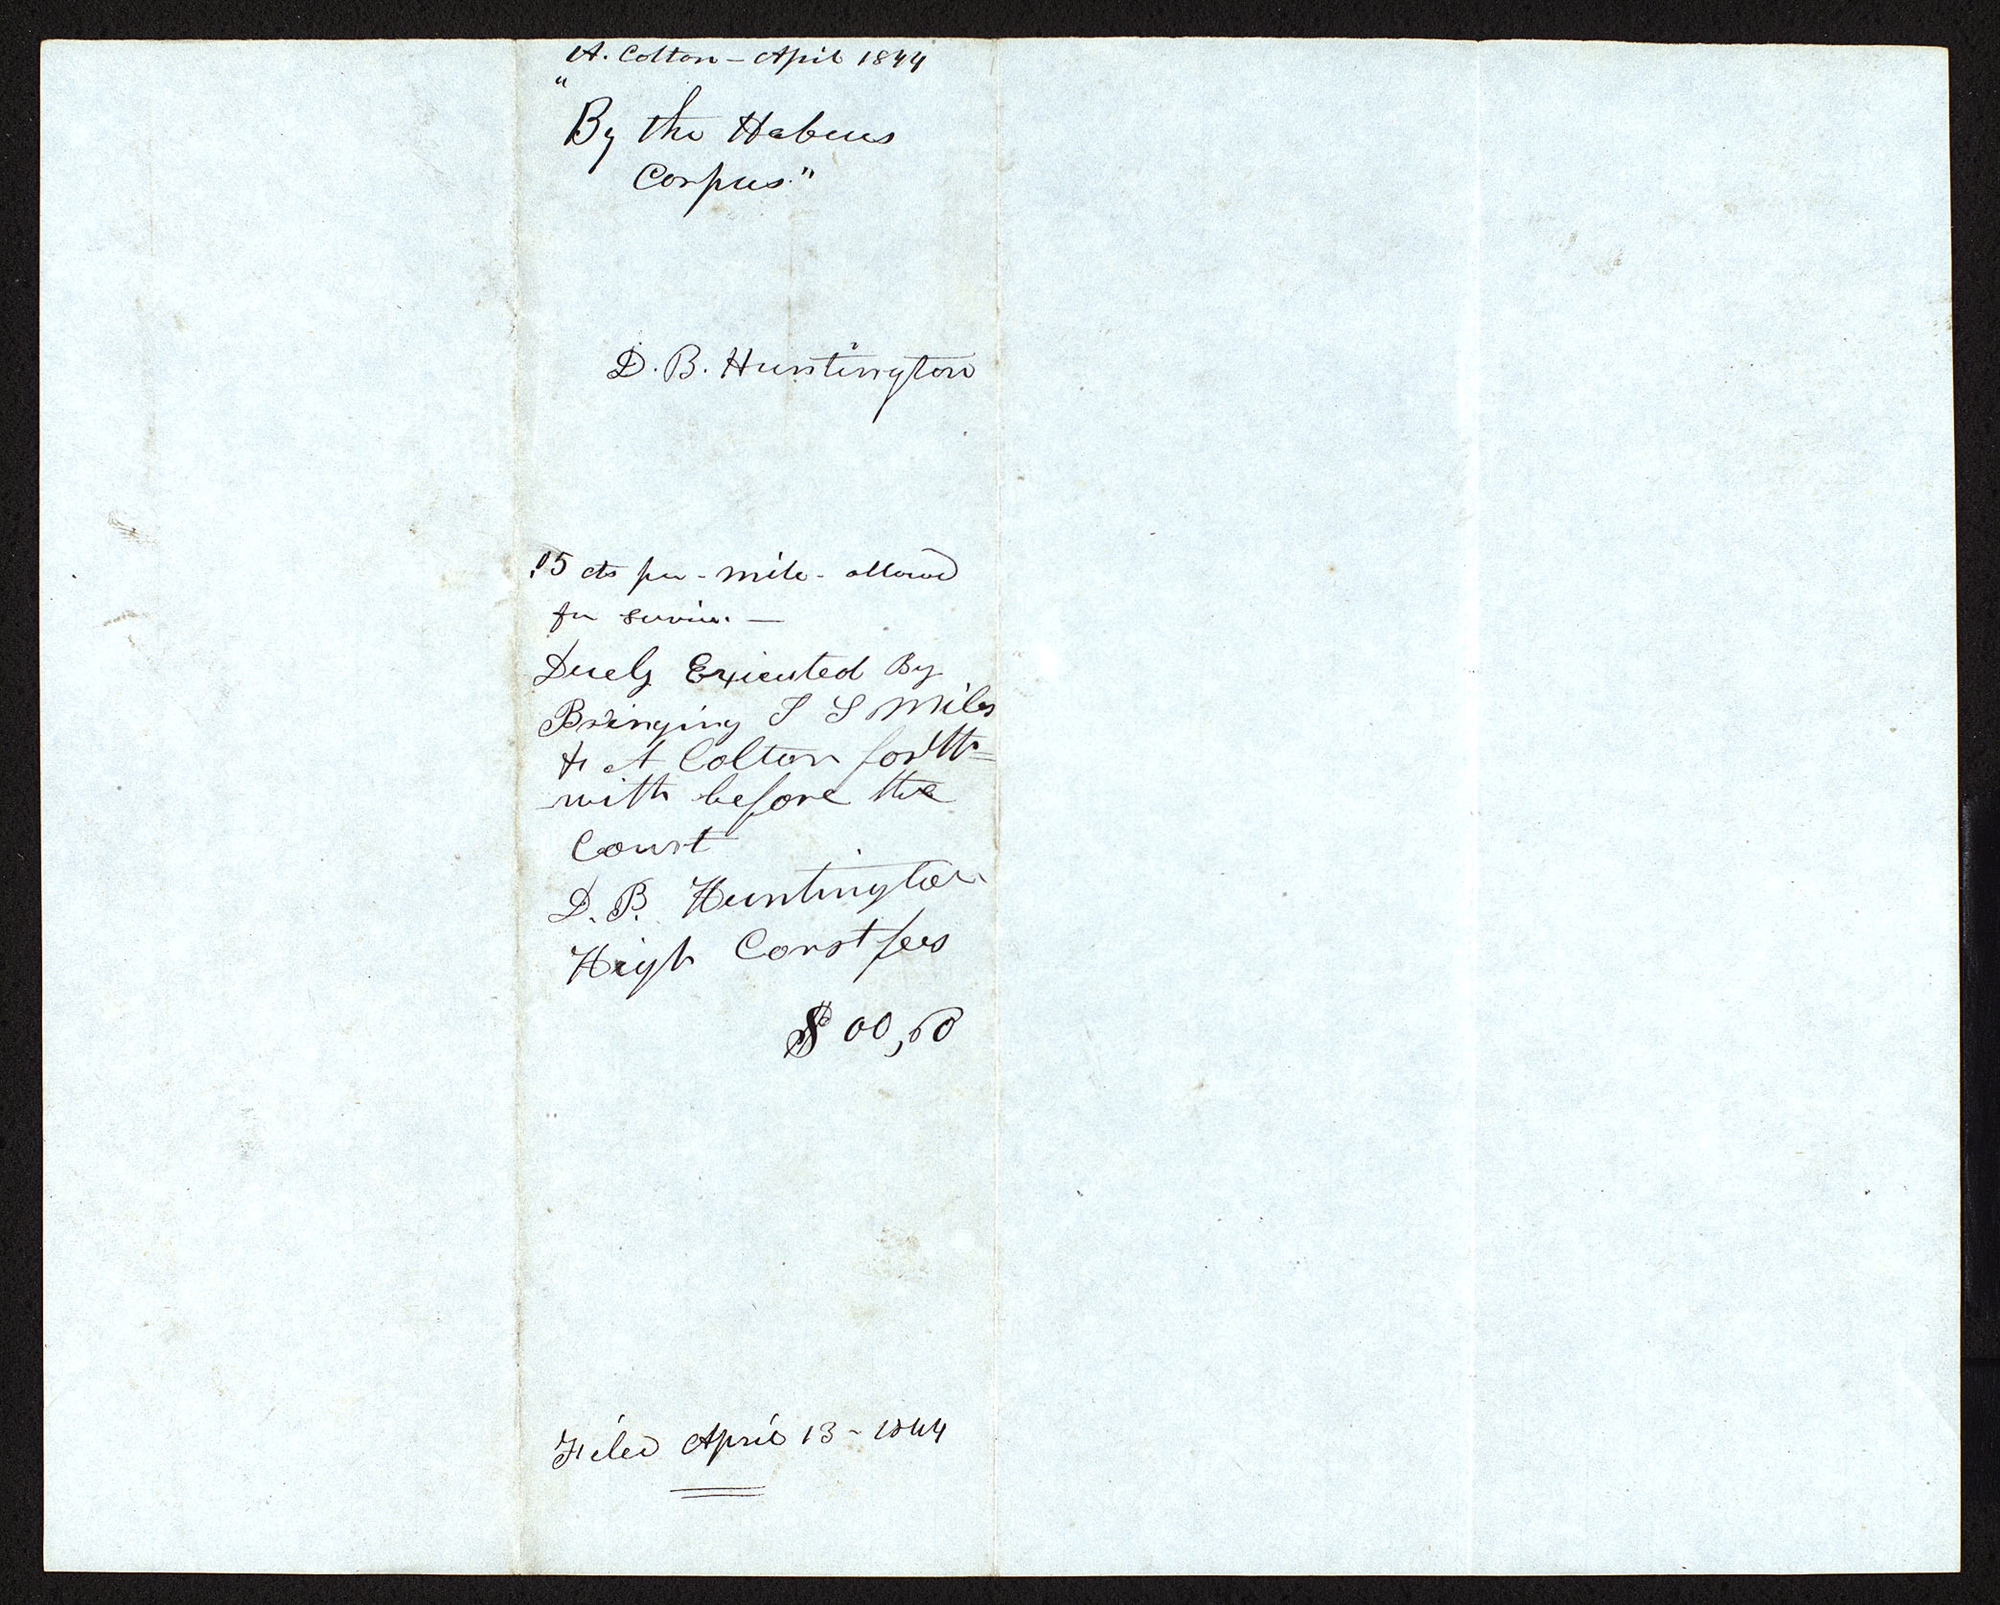 A. Colton – April 1844
"By the Habeus
Corpus."
D. B. Huntington
.05 cts per - mile - allowed
for service. —
Duely Exicuted By
Bringing S S Miles
& A Colton forth=
with before the
Court
D. B. Huntington
High Const fees
$ 00,60
Filed April 13 – 1844